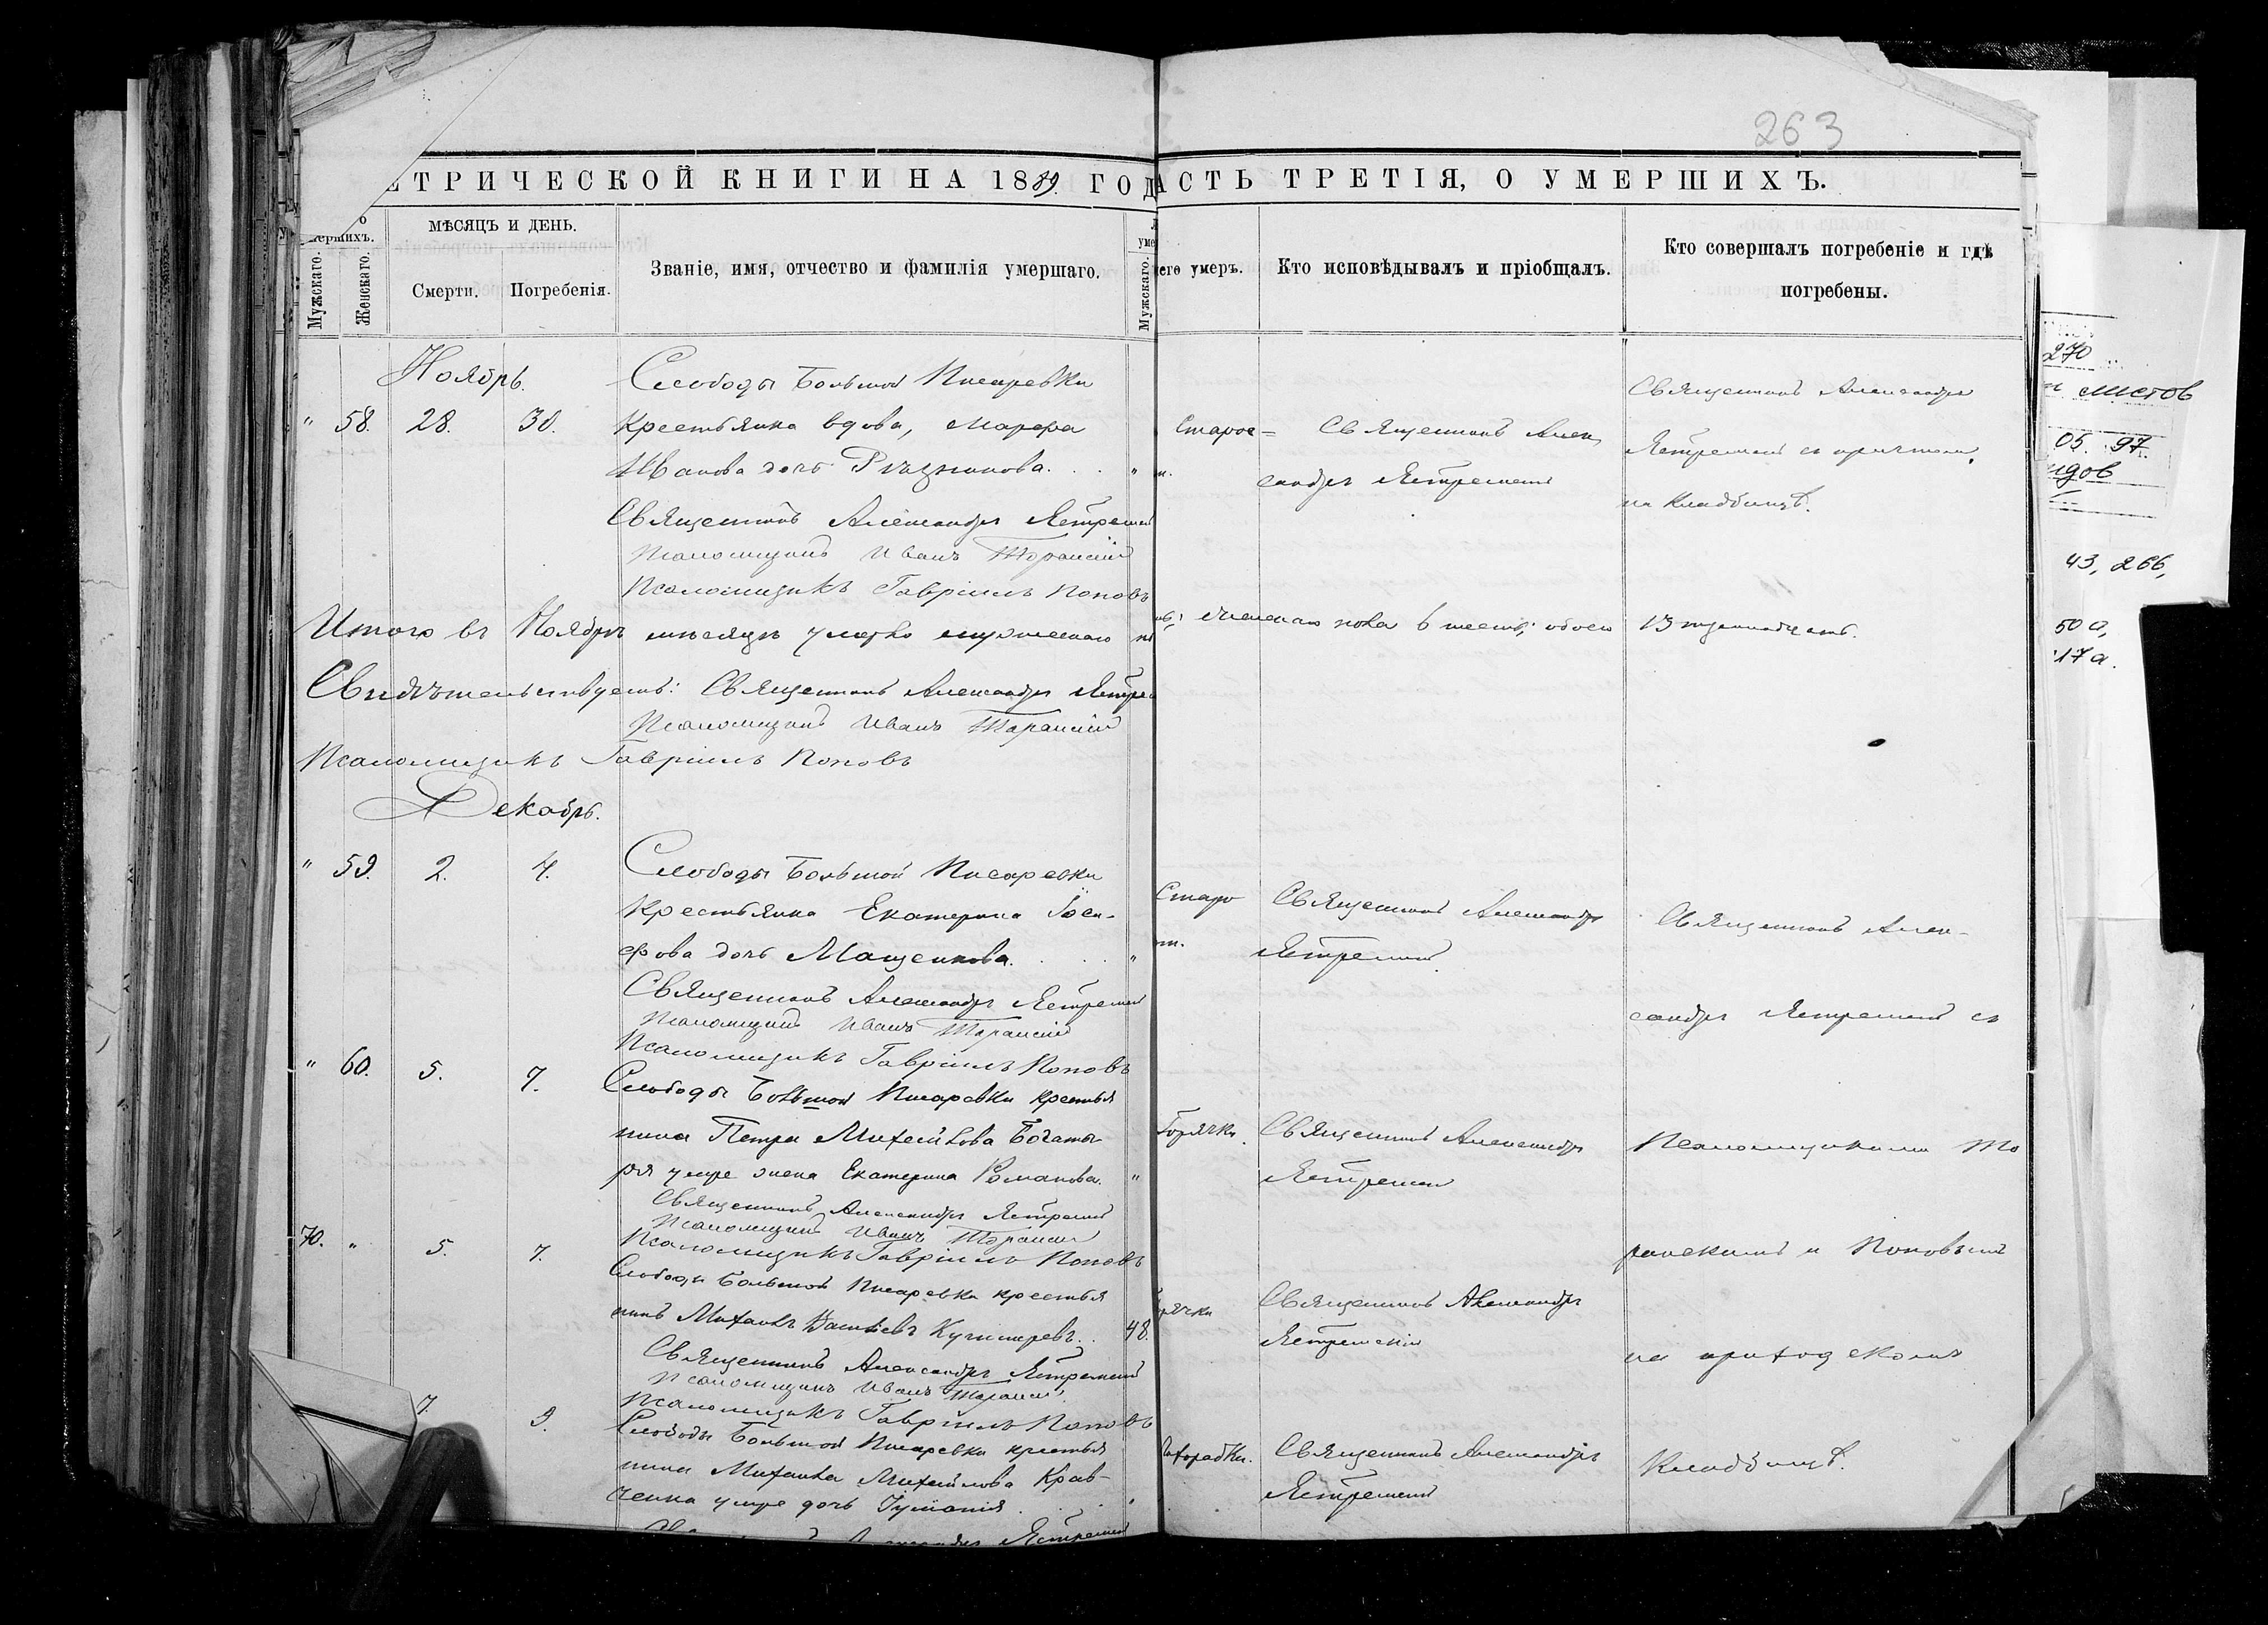 263
ЕТРИЧЕСКОЙ КНИГИ НА 1889 ГОД
АСТЬ ТРЕТІЯ, О УМЕРШИХЪ.
мершихъ.
Мужскаго.
Женскаго.
МѢСЯЦЪ И ДЕНЬ.
Смерти.
Погребенія.
Званіе, имя, отчество и фамилія умершаго.
уме
Мужскаго.
чего умеръ.
Кто исповѣдывалъ и пріобщалъ.
Кто совершалъ погребеніе и гдѣ
погребены.
Ноябрь.
" 58. 28. 30.
Слободы Большой Писаревки
крестьянка вдова, Марфа
Иванова дочь
Священникъ Александръ Ястремск
Псаломщикъ Иванъ Торанскій
Псаломщикъ Гавріилъ Поповъ
Старос=
т.
Священникъ Алек
сандръ Ястремскій
Священникъ Александръ
Ястремскій съ причтомъ
на кладбищѣ.
Итого въ Ноябрѣ мѣсяцѣ умерло мужескаго
женскаго пола 6 шесть; обоего 13 тринадцать.
Свидѣтельствуемъ: Священникъ Александръ Ястрем
Псаломщикъ Иванъ Торанскій
Псаломщикъ Гавріилъ Поповъ
Декабрь.
" 59. 2. 4.
Слободы Большой Писаревки
крестьянка Екатерина Іоси-
фова дочь Мащенкова.
Священникъ Александръ Ястремскій
Псаломщикъ Иванъ Торанскій
Псаломщикъ Гавріилъ Поповъ
Старо
ст.
Священникъ Александръ
Ястремскій
Священникъ Алек-
сандръ Ястремскій съ
" 60. 5. 7.
Слободы Большой Писаревки крестья
нина Петра Михайлова Богаты-
ря умре жена Екатерина Романова.
Священникъ Александръ Ястремскій
Псаломщикъ Иванъ Торанскій
Псаломщикъ Гавріилъ Поповъ
Горячки.
Священникъ Александръ
Ястремскій
Псаломщиками То
ранскимъ и Поповымъ
70. " 5. 7.
Слободы Большой Писаревки крестья
нинъ Михаилъ Васильевъ
48.
рячки
Священникъ Александръ
Ястремскій
на приходскомъ
Священникъ Александръ Ястремскій
Псаломщикъ Иванъ Торанскій
Псаломщикъ Гавріилъ Поповъ
7. 9.
Слободы Большой Писаревки крестья
нина Михаила Михайлова Крав-
ченка умре дочь Іуліанія
ихорадки.
Священникъ Александръ
Ястремскій
Кладбищѣ.
270
листов
05. 97.
43, 266,
50 а,
17 а.